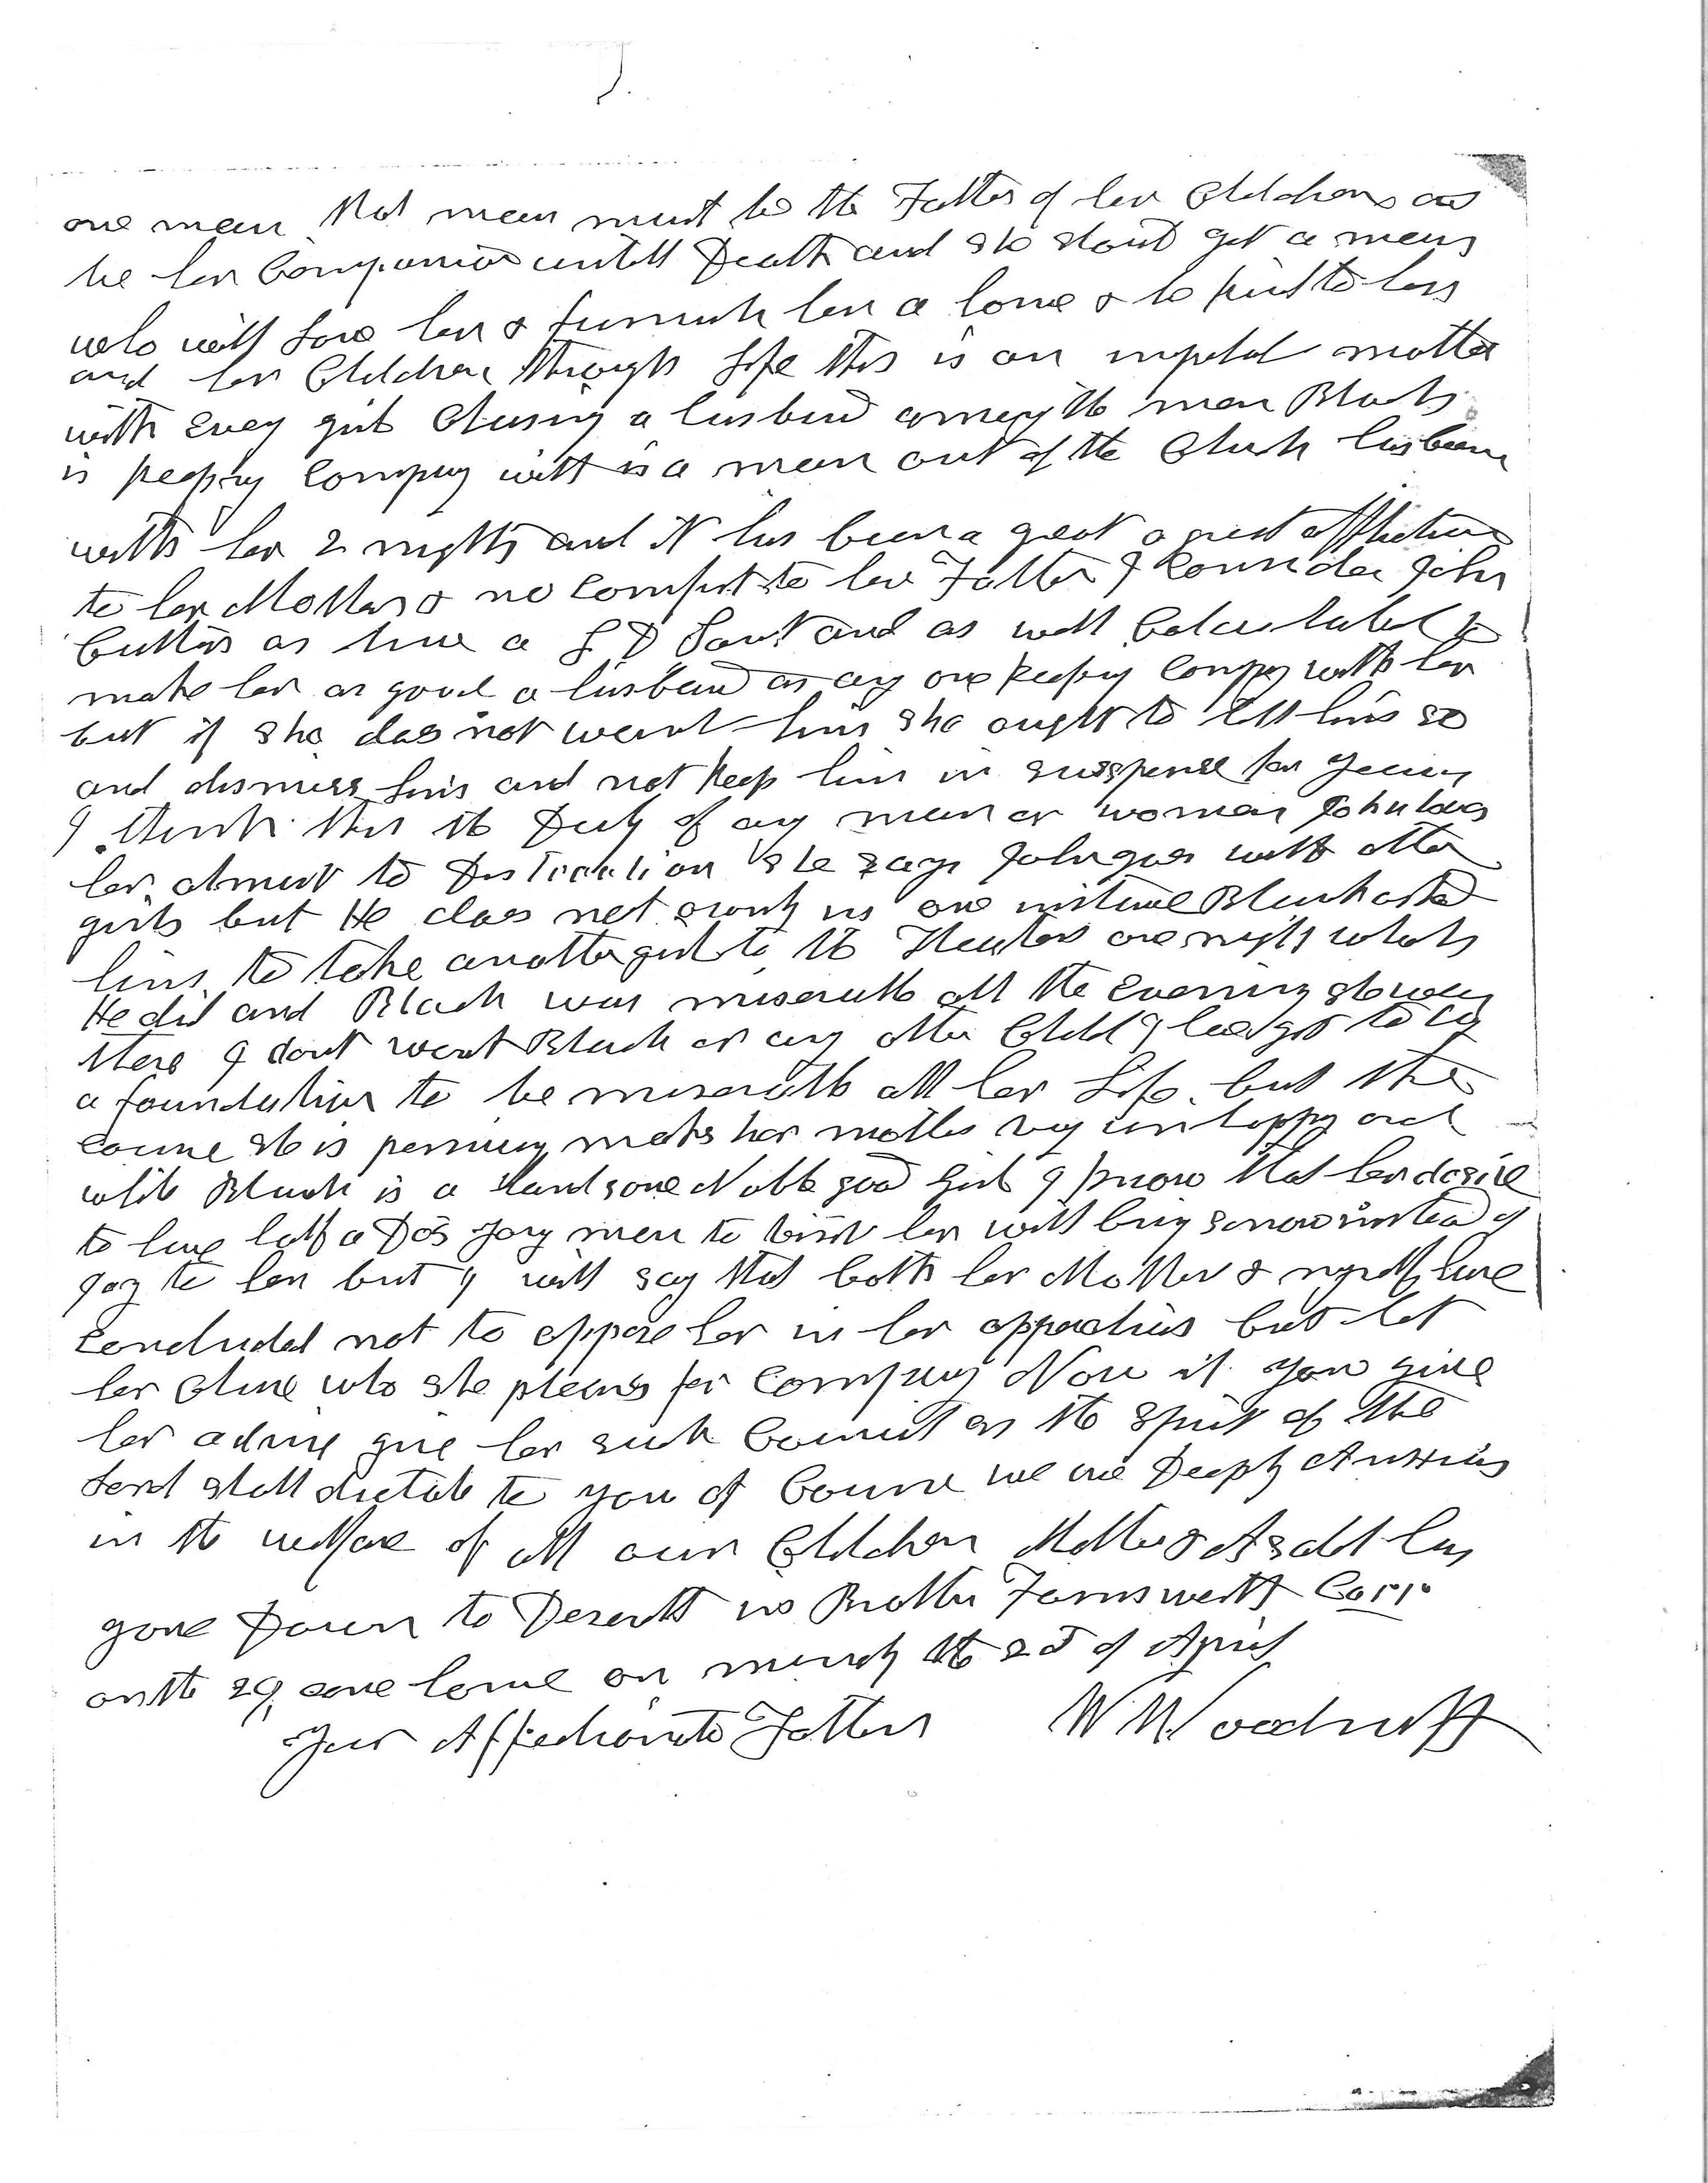 one man that man must be the Father of her Children and
be her Companion untill Death and she should get a man
who will love her & furnish her a home & be kind to her
and her Children through life this is an important matter
with Every girl Chusing a husband among the men Blanch
is keeping Company with is a man out of the Church has been
with her 2 nights and it has been a great a great affliction
to her Mother & no comfort to her Father I Consider John
Cutler as true a L D Saint and as well Calculated to
make her as good a husband as any one keeping Compy with her
but if she does not want him she ought to tell him so
and dismiss him and not keep him in suspense for years
I think this the Duty of any man or woman John loves
her almost to Distraction she says John goes with other
girls but He does not in one instance Blanch asked
him to take another girl to the Theater one night which
He did and Blanch was miserable all the Evening
there I dont want Blanch or any other Child I have got to lay
a foundation to be miserable all her Life. but the
course she is persuing makes her mother very unhappy and
while Blanch is a Handsome Noble good Girl I know that her desire
to have half a Doz young men to visit her will bring sorrow instead of
joy to her but I will say that both her Mother & myself have
concluded not to oppose her in her but let
her Chuse who she pleases for Company Now if you give
her advise give her such Council as the spirit of the
Lord shall dictate to you of Course we are Deeply Anxious
in the welfare of all our Children Mother & Asahel has
gone Down to Deserett in Brother Farnsworth Carr
on the 29, come home on the 2d of April
Your Affectionate Father W Woodruff